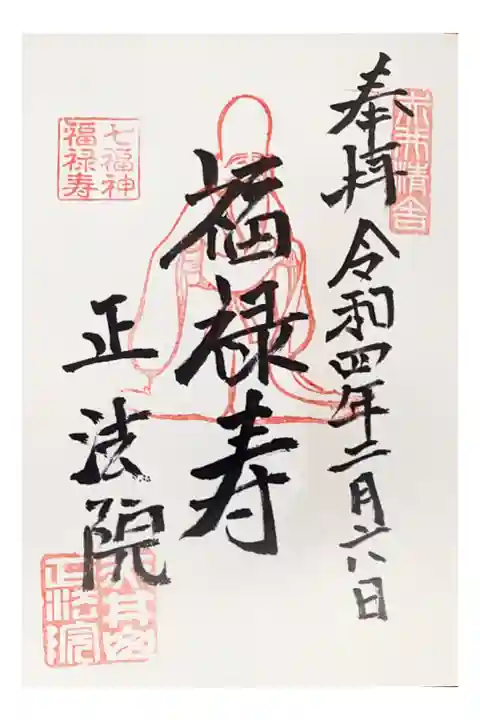 奉拝 令和四年二月六日
福禄寿
正法院
七福神
福禄寿
正法院